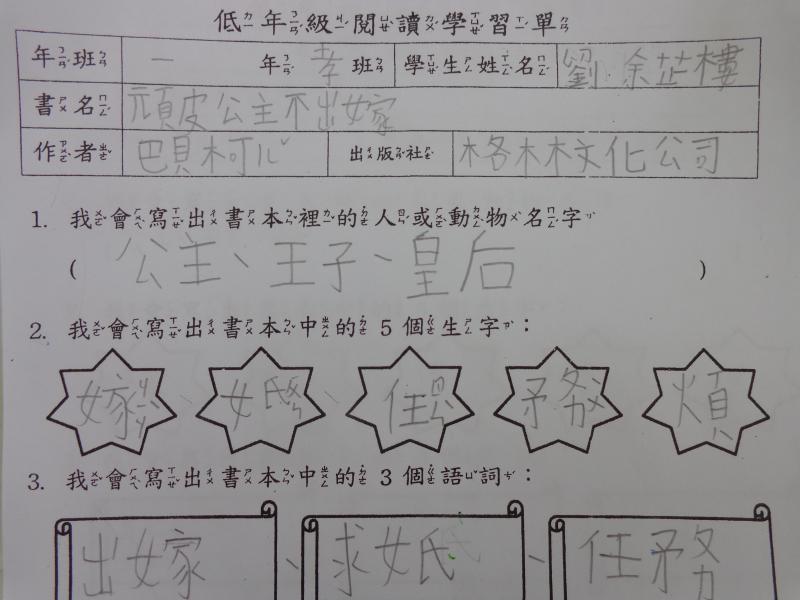 低年級閱讀學習單
年班 一 年 孝 班 學生姓名 劉 余芷樓
書名 頑皮公主不出嫁
作者 巴貝柯爾 出版社 格林文化公司
1. 我會寫出書本裡的人或動物名字
( 公主、王子、皇后 )
2. 我會寫出書本中的 5 個生字：
嫁 婚 任 務 煩
3. 我會寫出書本中的 3 個語詞：
出嫁、求婚、任務